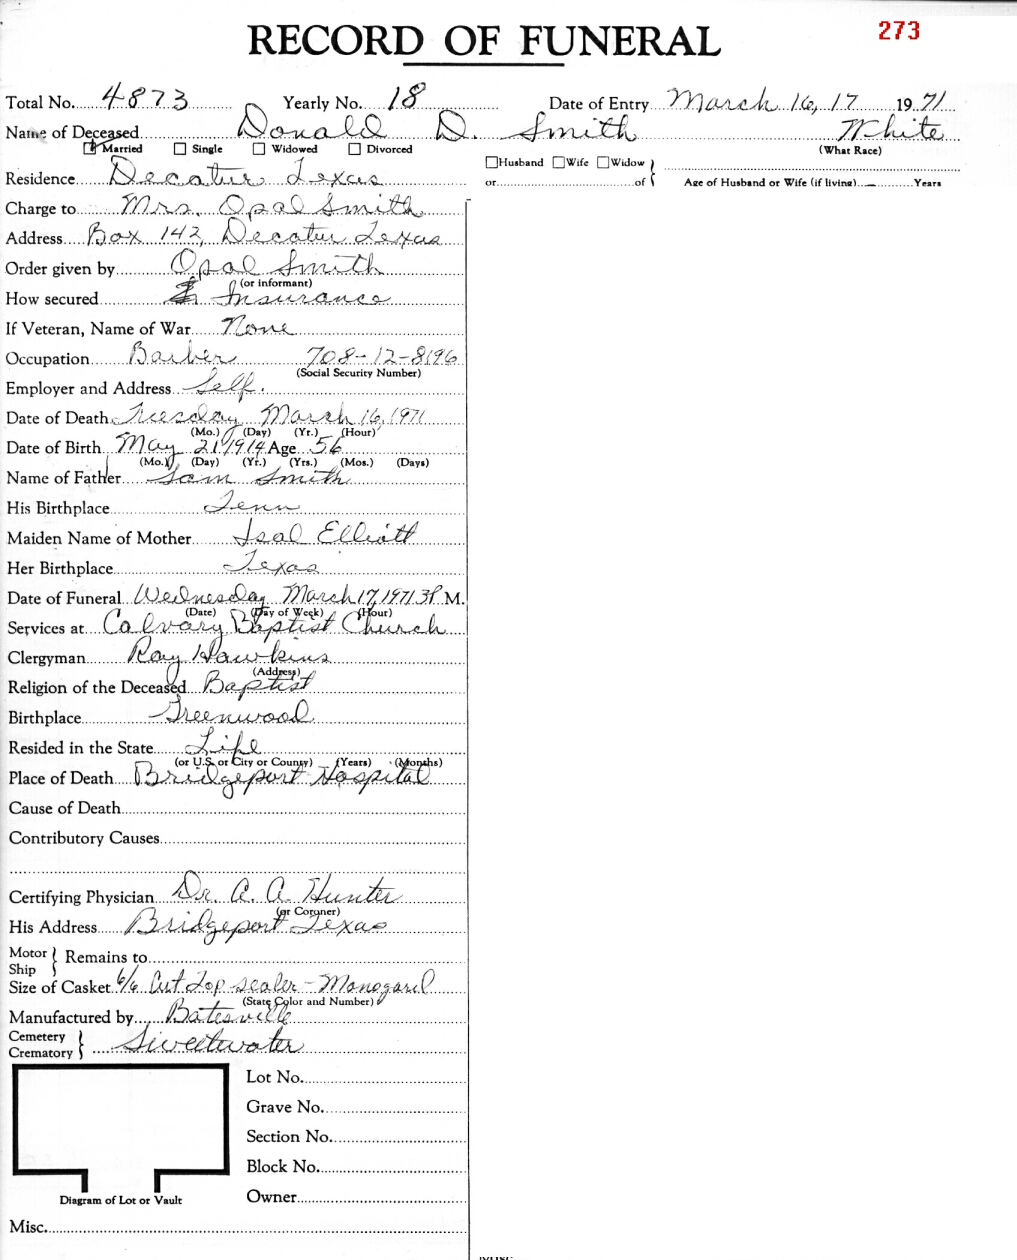 RECORD OF FUNERAL 273
Total No. 4873 Yearly No. 18 Date of Entry March 16, 17 1971
Name of Deceased Donald D. Smith White
Married Single Widowed Divorced (What Race)
Husband Wife Widow
Residence Decatur Texas or of Age of Husband or Wife (if living) Years
Charge to Mrs. Opal Smith
Address Box 142, Decatur Texas
Order given by Opal Smith
(or informant)
How secured Insurance
If Veteran, Name of War None
Occupation Barber 708-12-8196
(Social Security Number)
Employer and Address Self.
Date of Death Tuesday March 16, 1971
(Mo.) (Day) (Yr.) (Hour)
Date of Birth May 21 1914 Age 56
(Mo.) (Day) (Yr.) (Yrs.) (Mos.) (Days)
Name of Father Sam Smith
His Birthplace Tenn
Maiden Name of Mother Isal Elliott
Her Birthplace Texas
Date of Funeral Wednesday March 17, 1971 3P M.
(Date) (Day of Week) (Hour)
Services at Calvary Baptist Church
Clergyman Ray Hawkins
(Address)
Religion of the Deceased Baptist
Birthplace Greenwood
Resided in the State Life
(or U.S. or City or County) (Years) (Months)
Place of Death Bridgeport Hospital
Cause of Death
Contributory Causes
Certifying Physician Dr. A. A. Hunter
(or Coroner)
His Address Bridgeport Texas
Motor
Ship } Remains to
Size of Casket 6/6 Cut Top sealer -
(State Color and Number)
Manufactured by Batesville
Cemetery
Crematory } Sweetwater
Lot No.
Grave No.
Section No.
Block No.
Diagram of Lot or Vault Owner
Misc.